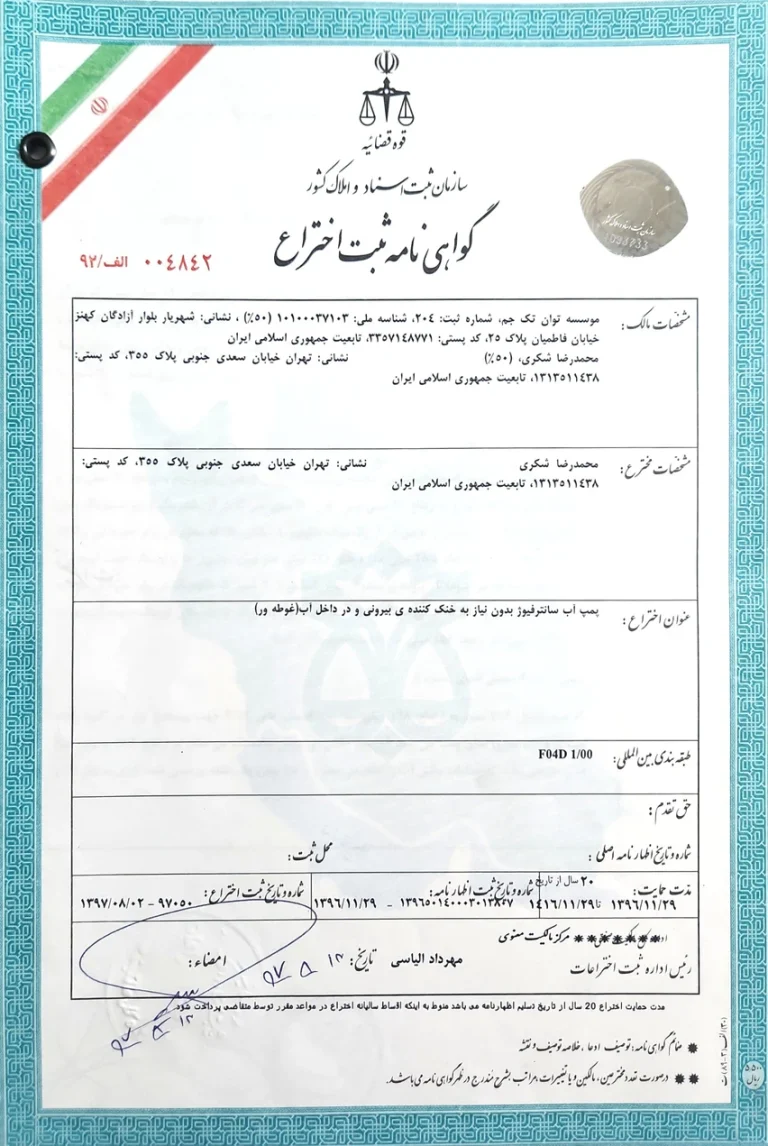 قوه قضائیه
سازمان ثبت اسناد و املاک کشور
گواهی نامه ثبت اختراع
۰۰۴۸۴۲ الف/۹۲
مشخصات مالک: موسسه توان تک جم، شماره ثبت: ۲۰۴، شناسه ملی: ۱۰۱۰۰۰۳۷۱۰۳ (۵۰٪) ، نشانی: شهریار بلوار آزادگان کهنز
خیابان فاطمیان پلاک ۲۵، کد پستی: ۳۳۵۷۱۴۸۷۷۱، تابعیت جمهوری اسلامی ایران
محمدرضا شکری، (۵۰٪) نشانی: تهران خیابان سعدی جنوبی پلاک ۳۵۵، کد پستی:
۱۳۱۳۵۱۱۴۳۸، تابعیت جمهوری اسلامی ایران
مشخصات مخترع: محمدرضا شکری نشانی: تهران خیابان سعدی جنوبی پلاک ۳۵۵، کد پستی:
۱۳۱۳۵۱۱۴۳۸، تابعیت جمهوری اسلامی ایران
عنوان اختراع: پمپ آب سانترفیوژ بدون نیاز به خنک کننده ی بیرونی و در داخل آب(غوطه ور)
طبقه بندی بین المللی: F04D 1/00
حق تقدم:
شماره و تاریخ اظهارنامه اصلی: محل ثبت:
مدت حمایت: ۲۰ سال از تاریخ شماره و تاریخ ثبت اظهارنامه: شماره و تاریخ ثبت اختراع:
۱۳۹۶/۱۱/۲۹ تا ۱۴۱۶/۱۱/۲۹ ۱۳۹۶/۱۱/۲۹ ۹۷۰۵۰ - ۱۳۹۷/۰۸/۰۲
مرکز مالکیت معنوی
رئیس اداره ثبت اختراعات مهرداد الیاسی تاریخ: امضاء:
مدت حمایت اختراع 20 سال از تاریخ تسلیم اظهارنامه می باشد منوط به اینکه اقساط سالیانه اختراع در مواعد مقرر توسط متقاضی پرداخت شود.
✸ ضمائم گواهی نامه: توصیف، ادعا، خلاصه توصیف و نقشه
✸ ✸ درصورت تعدد مخترعین، مالکین و یا تغییرات، مراتب بشرح مندرج در ظهر گواهی نامه می باشد.